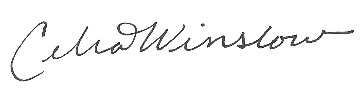 Celia Winslow